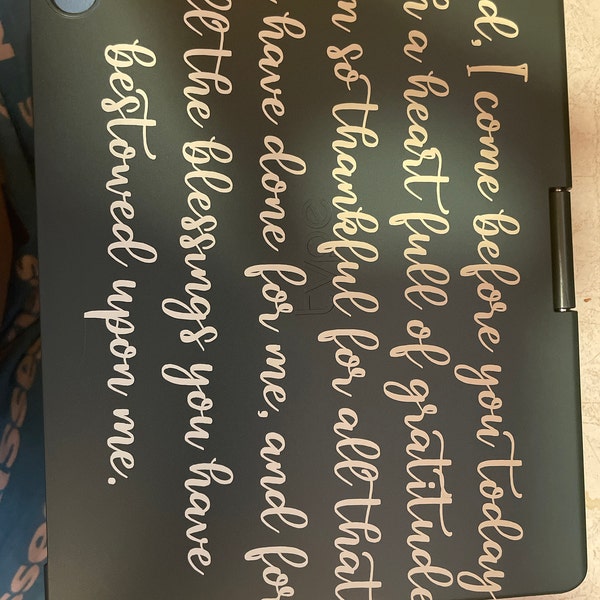 d, I come before you today
h a heart full of gratitude
m so thankful for all that
have done for me, and for
ll the blessings you have
bestowed upon me.